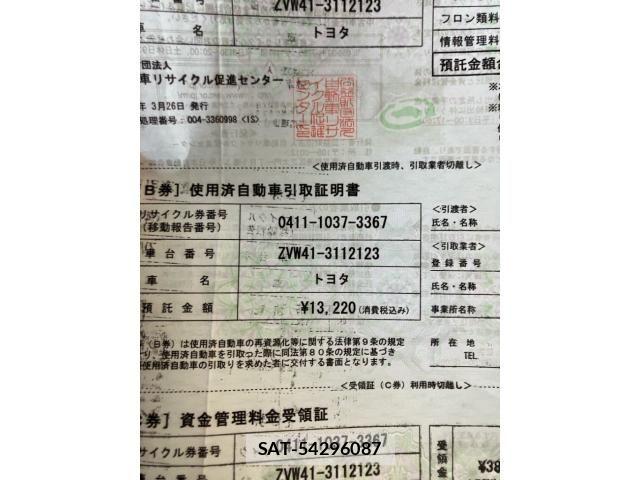 ZVW41-3112123
名
トヨタ
フロン類料
情報管理料
預託金額合
団法人
車リサイクル促進センター
年 3月26日 発行
処理番号：004-3360998 <1S>
＜使用済自動車引渡時、引取業者切離し＞
B券］使用済自動車引取証明書
リサイクル券番号
(移動報告番号)
0411-1037-3367
車台番号
ZVW41-3112123
車 名
トヨタ
預託金額
¥13,220(消費税込み)
＜引渡者＞
氏名・名称
＜引取業者＞
登録番号
氏名・名称
事業所名称
(B券)は使用済自動車の再資源化等に関する法律第９条の規定
り、使用済自動車を引取った際に同法第８０条の規定に基づき
使用済自動車の引取りを求めた者に交付する書面となります。
所在地
TEL
＜受領証（C券）利用時切離し＞
C券］資金管理料金受領証
サイクル券番号
0411-1037-3367
車台番号
ZVW41-3112123
受領金
¥38
SAT-54296087